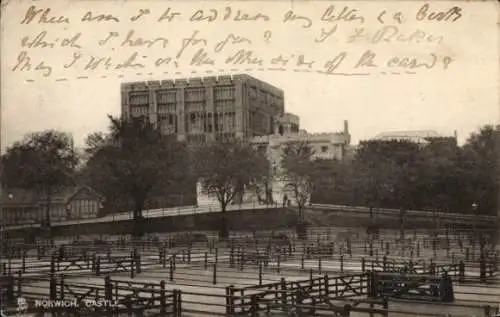 When am I to address my letter (& a book
which I have for you ?
May I write on the other side of the card?
NORWICH, CASTLE.